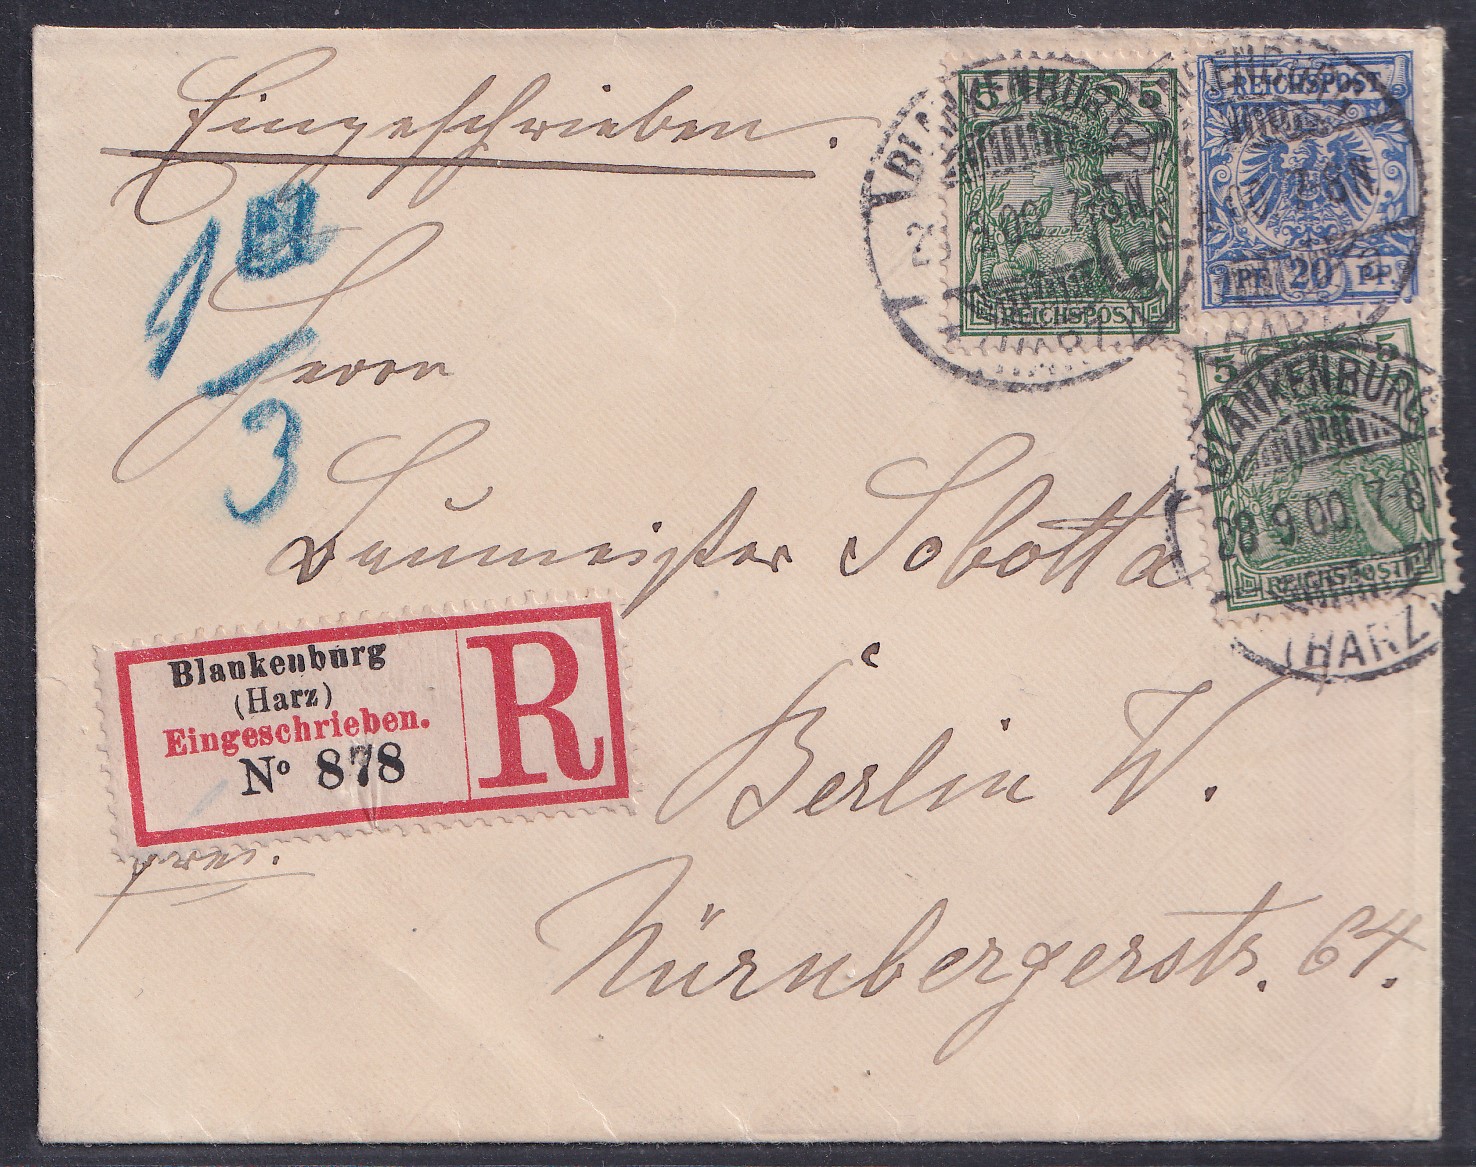 Eingeschrieben.
5 5
REICHSPOST
REICHSPOST
PF. 20 PF.
5 5
REICHSPOST
BLANKENBURG
28 9.00. 7-8N
(HARZ)
1
3
Herrn
Baumeister Sobotta
Berlin W.
Nürnbergerstr. 64.
Blankenburg
(Harz)
Eingeschrieben.
No 878
R
frei.